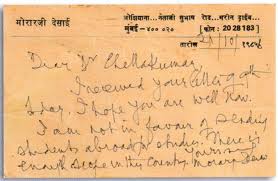 मोरारजी देसाई
ओशियाना, नेताजी सुभाष रोड, मरीन ड्राईव,
मुंबई - ४०० ०२० [ फोन : 2028183 ]
तारीख 21/10/198
Dear Dr Chellakumar,
I received your letter of
I hope you are well now.
I am not in favour of sending
students abroad for studies. There is
enough scope in this country.
Yours
Morarji Desai